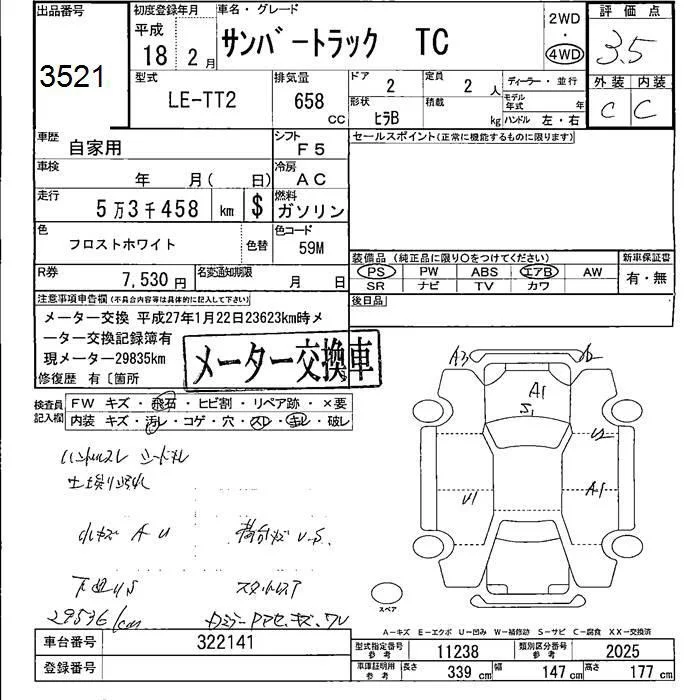 出品番号
3521
初度登録年月
平成
18 2 月
車名・グレード
サンバートラック TC
2WD
・
4WD
評価点
3.5
外装 内装
C C
型式
LE-TT2
排気量
658
CC
ドア
2
定員
2 人
ディーラー・並行
形状
ヒラB
積載
kg
モデル年式 年
ハンドル 左・右
車歴
自家用
シフト
F5
セールスポイント(正常に機能するものに限ります)
車検
年 月( 日)
冷房
AC
走行
5万3千458 km $
燃料
ガソリン
色
フロストホワイト
色替
色コード
59M
装備品 (純正品に限り○をつけてください)
新車保証書
PS PW ABS エアB AW
有・無
SR ナビ TV カワ
R券
7,530 円
名変通知期限
月 日
後日品
注意事項申告欄(不具合内容等は具体的に記入して下さい)
メーター交換 平成27年1月22日23623km時メ
ーター交換記録簿有
現メーター29835km
メーター交換車
修復歴 有〔箇所
検査員記入欄
FW キズ・飛石・ヒビ割・リペア跡・×要
内装 キズ・汚レ・コゲ・穴・スレ・キレ・破レ
ハンドルスレ シートキレ
小キズ A U
荷台キズ U.S
下回りS
スタットレス
29536km
A3
A1
S1
U2
U1
A1
スペア
A-キズ E-エクボ U-凹み W-補修跡 S-サビ C-腐食 XX-交換済
車台番号
322141
登録番号
型式指定番号
参考
11238
類別区分番号
参考
2025
車庫証明用
参考
長さ 339 cm 幅 147 cm 高さ 177 cm